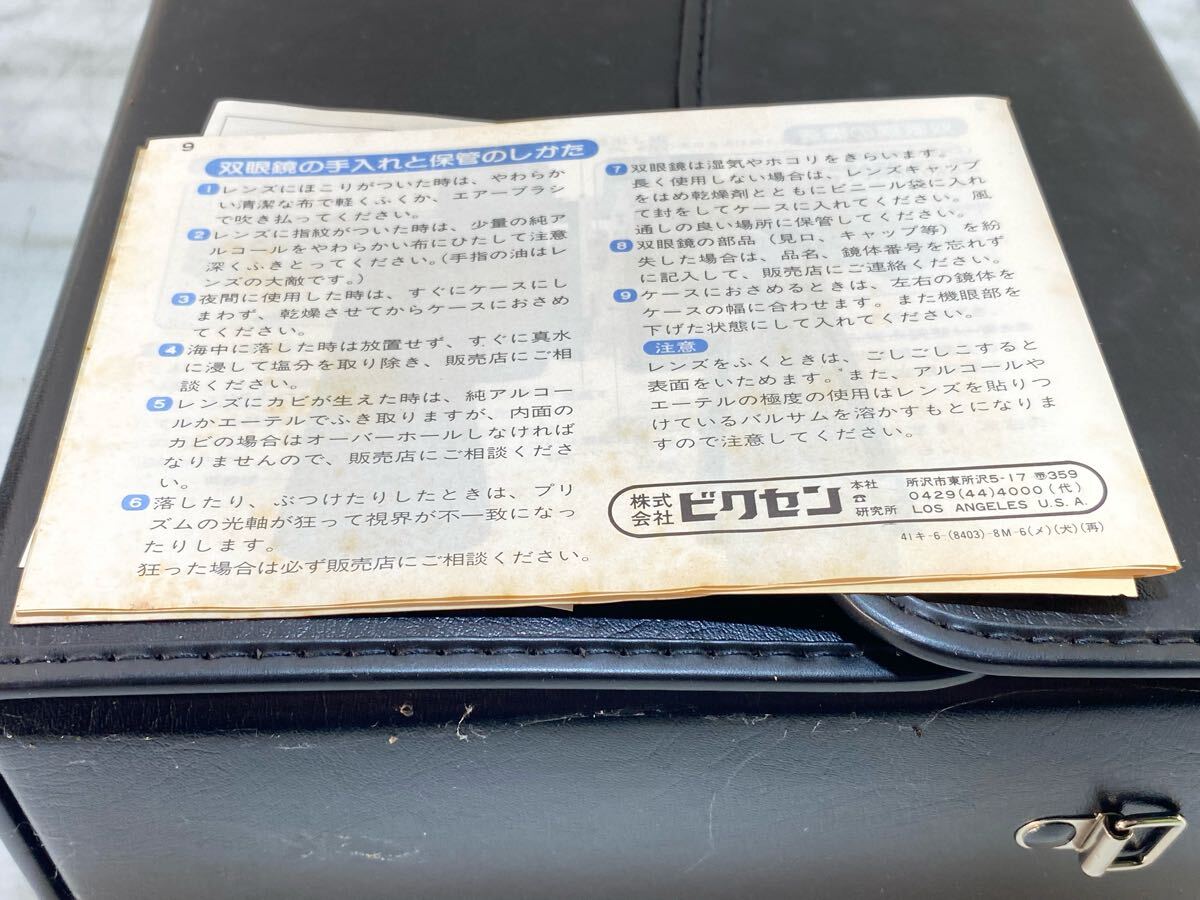 9
双眼鏡の手入れと保管のしかた
1 レンズにほこりがついた時は、やわらか
い清潔な布で軽くふくか、エアーブラシ
で吹き払ってください。
2 レンズに指紋がついた時は、少量の純ア
ルコールをやわらかい布にひたして注意
深くふきとってください。(手指の油はレ
ンズの大敵です。)
3 夜間に使用した時は、すぐにケースにし
まわず、乾燥させてからケースにおさめ
てください。
4 海中に落した時は放置せず、すぐに真水
に浸して塩分を取り除き、販売店にご相
談ください。
5 レンズにカビが生えた時は、純アルコー
ルかエーテルでふき取りますが、内面の
カビの場合はオーバーホールしなければ
なりませんので、販売店にご相談くださ
い。
6 落したり、ぶつけたりしたときは、プリ
ズムの光軸が狂って視界が不一致になっ
たりします。
狂った場合は必ず販売店にご相談ください。
7 双眼鏡は湿気やホコリをきらいます。
長く使用しない場合は、レンズキャップ
をはめ乾燥剤とともにビニール袋に入れ
て封をしてケースに入れてください。風
通しの良い場所に保管してください。
8 双眼鏡の部品(見口、キャップ等)を紛
失した場合は、品名、鏡体番号を忘れず
に記入して、販売店にご連絡ください。
9 ケースにおさめるときは、左右の鏡体を
ケースの幅に合わせます。また機眼部を
下げた状態にして入れてください。
注意
レンズをふくときは、ごしごしこすると
表面をいためます。また、アルコールや
エーテルの極度の使用はレンズを貼りつ
けているバルサムを溶かすもとになりま
すので注意してください。
株式会社 ビクセン
本社 所沢市東所沢5-17 〒359
☎ 0429(44)4000(代)
研究所 LOS ANGELES U.S.A.
41キ-6-(8403)-8M-6(メ)(犬)(再)